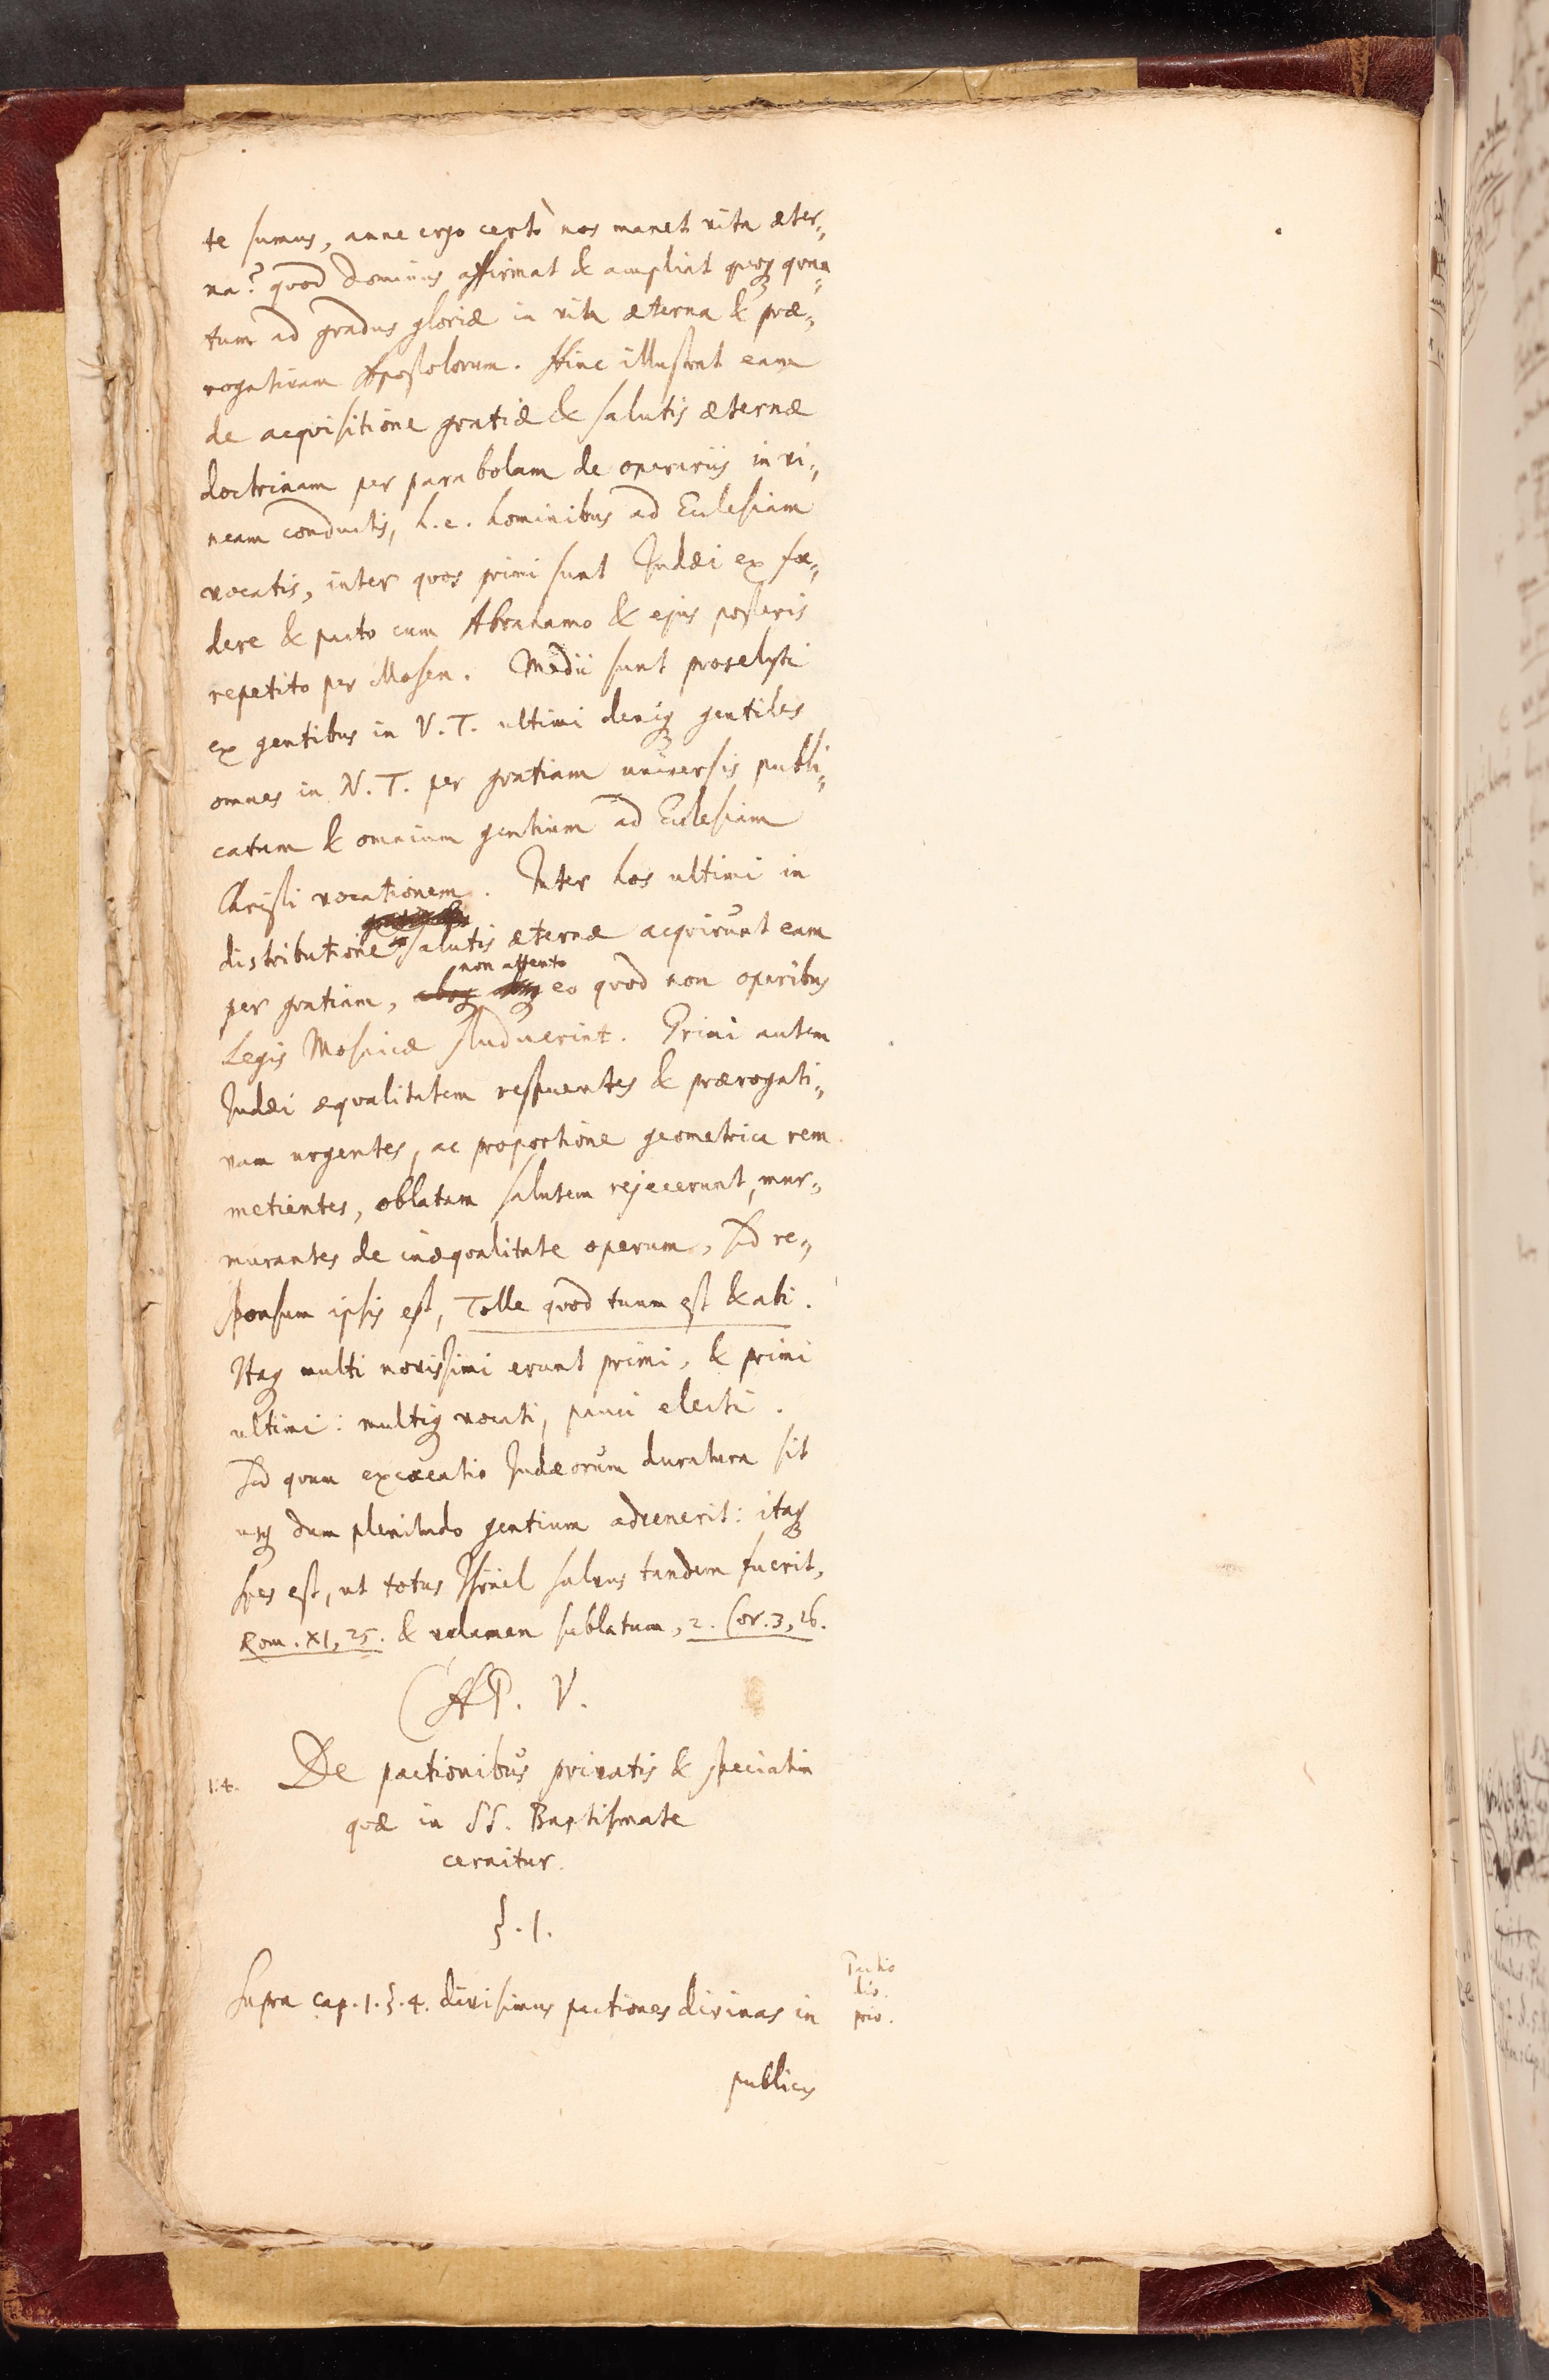 te sumus, anne ergo certò nos manet vita æter„
na? quod Dominus affirmat & ampliat quoq quan„
tum ad gradus gloriæ in vita æterna & præ„
rogativam Apostolorum. Hinc illustrat eam
de acquisitione gratiæ & salutis æternæ
doctrinam per parabolam de operariis in vi„
neam conductis, h.e. hominibus ad Ecclesiam
vocatis, inter quos primi sunt Judæi ex fœ„
dere & pacto cum Abrahamo & ejus posteris
repetito per Mosen. Medii sunt proselyti
ex gentibus in V. T. ultimi deniq gentiles
omnes in N. T. per gratiam universis publi„
catam & omnium gentium ad Ecclesiam
Christi vocationem. Inter hos ultimi in
distributione salutis æternæ acqvirunt eam
non attento
per gratiam, eo quod non operibus
Legis Mosaicæ studuerint. Primi autem
Judæi æqvalitatem respuentes & prærogati„
vam urgentes, ac proportione geometrica rem
metientes, oblatam salutem rejecerunt, mur„
murantes de inæqvalitate operum, Sed re„
sponsum ipsis est, Tolle quod tuum est & abi.
Itaq multi novissimi erunt primi, & primi
ultimi: multiq vocati, pauci electi.
Sed quum excæcatio Judæorum duratura sit
usq dum plenitudo gentium advenerit: itaq
spes est, ut totus Israel salvus tandem fuerit,
Rom. XI, 25. & velamen sublatum, 2. Cor. 3, 16.
CAP. V.
1.4. De pactionibus privatis & speciatim
quæ in SS. Baptismate
cernitur.
§. 1.
Supra cap. 1. §. 4. divisimus pactiones divinas in
Pactio
div.
priv.
publicas